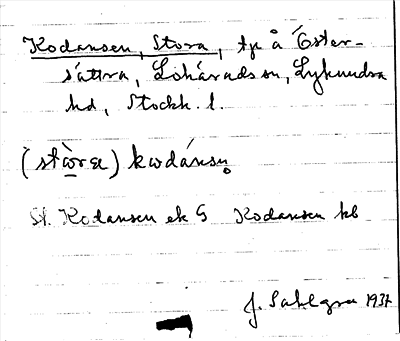 Kodansen, Stora, tp å Öster-
sättra, Lohärads sn, Lyhundra
hd, Stockh. l.
(stɷ̀ra) kɷdánsn̥
St. Kodansen ek 5 Kodansen hb
J. Sahlgren 1937